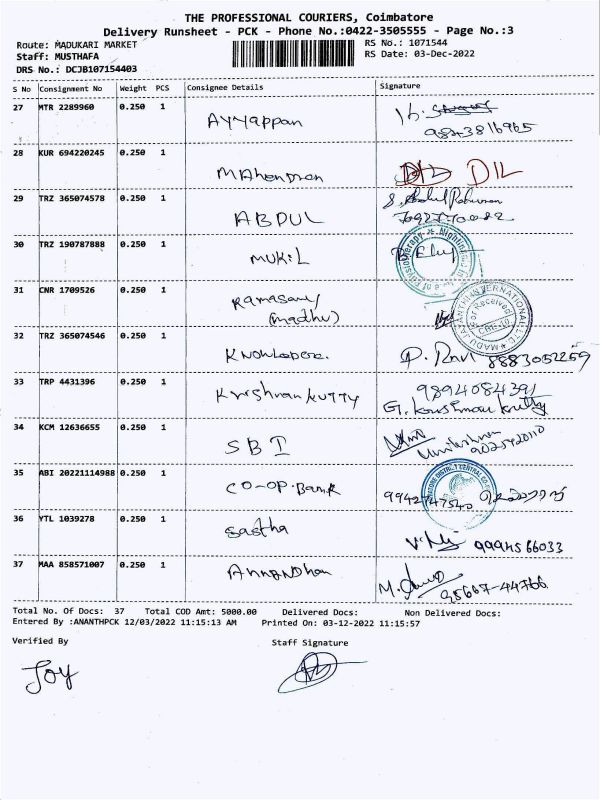 THE PROFESSIONAL COURIERS, Coimbatore
Delivery Runsheet - PCK - Phone No.:0422-3505555 - Page No.:3
Route: MADUKARI MARKET RS No.: 1071544
Staff: MUSTHAFA RS Date: 03-Dec-2022
DRS No.: DCJB107154403
S No Consignment No Weight PCS Consignee Details Signature
27 MTR 2289960 0.250 1 Ayyappan
9843816965
28 KUR 694220245 0.250 1 Mahendran DIL
29 TRZ 365074578 0.250 1 ABDUL
30 TRZ 190787888 0.250 1 MUKIL
31 CNR 1709526 0.250 1 Ramasamy
(madhu)
32 TRZ 365074546 0.250 1 P. Ravi 8883052259
33 TRP 4431396 0.250 1 Krishnan kutty 9894084391
34 KCM 12636655 0.250 1 SBI
9025420110
35 ABI 20221114988 0.250 1 CO-OP.Bank 9942747540
36 YTL 1039278 0.250 1 Sastha 9994566033
37 MAA 858571007 0.250 1 95667-44766
Total No. Of Docs: 37 Total COD Amt: 5000.00 Delivered Docs: Non Delivered Docs:
Entered By :ANANTHPCK 12/03/2022 11:15:13 AM Printed On: 03-12-2022 11:15:57
Verified By Staff Signature
Joy